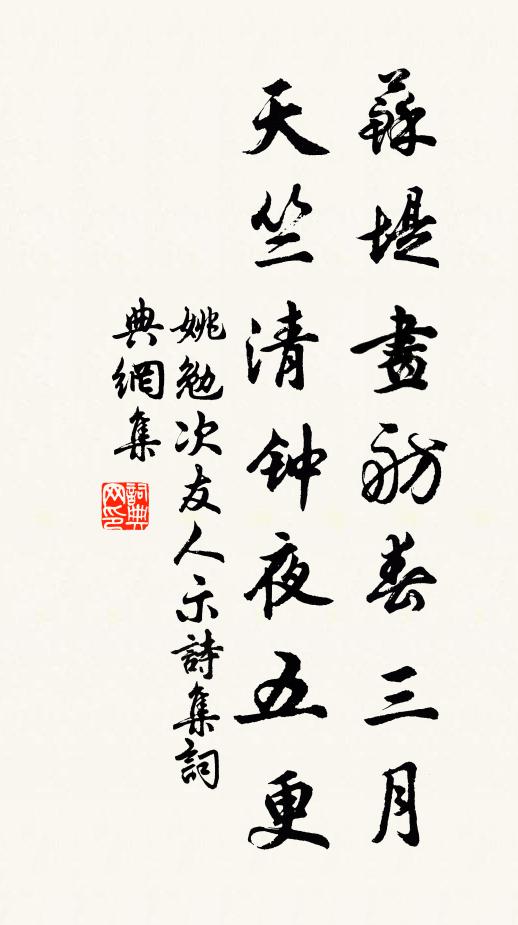 蘇堤畫舫春三月
天竺清钟夜五更
姚勉次友人示詩集詞
典網集
詞典网印